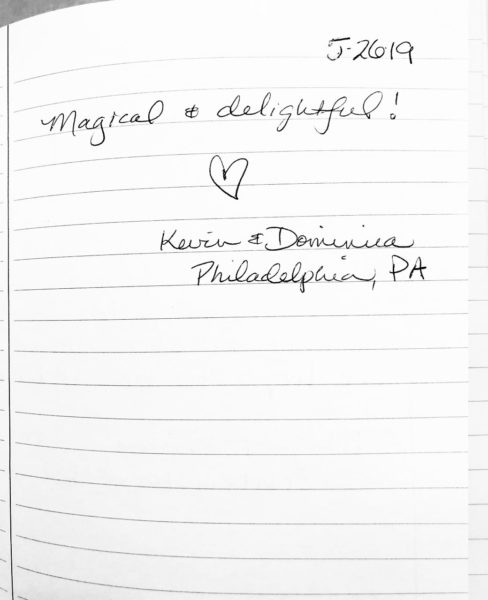 5-26-19
Magical & delightful!
Kevin & Dominica
Philadelphia, PA